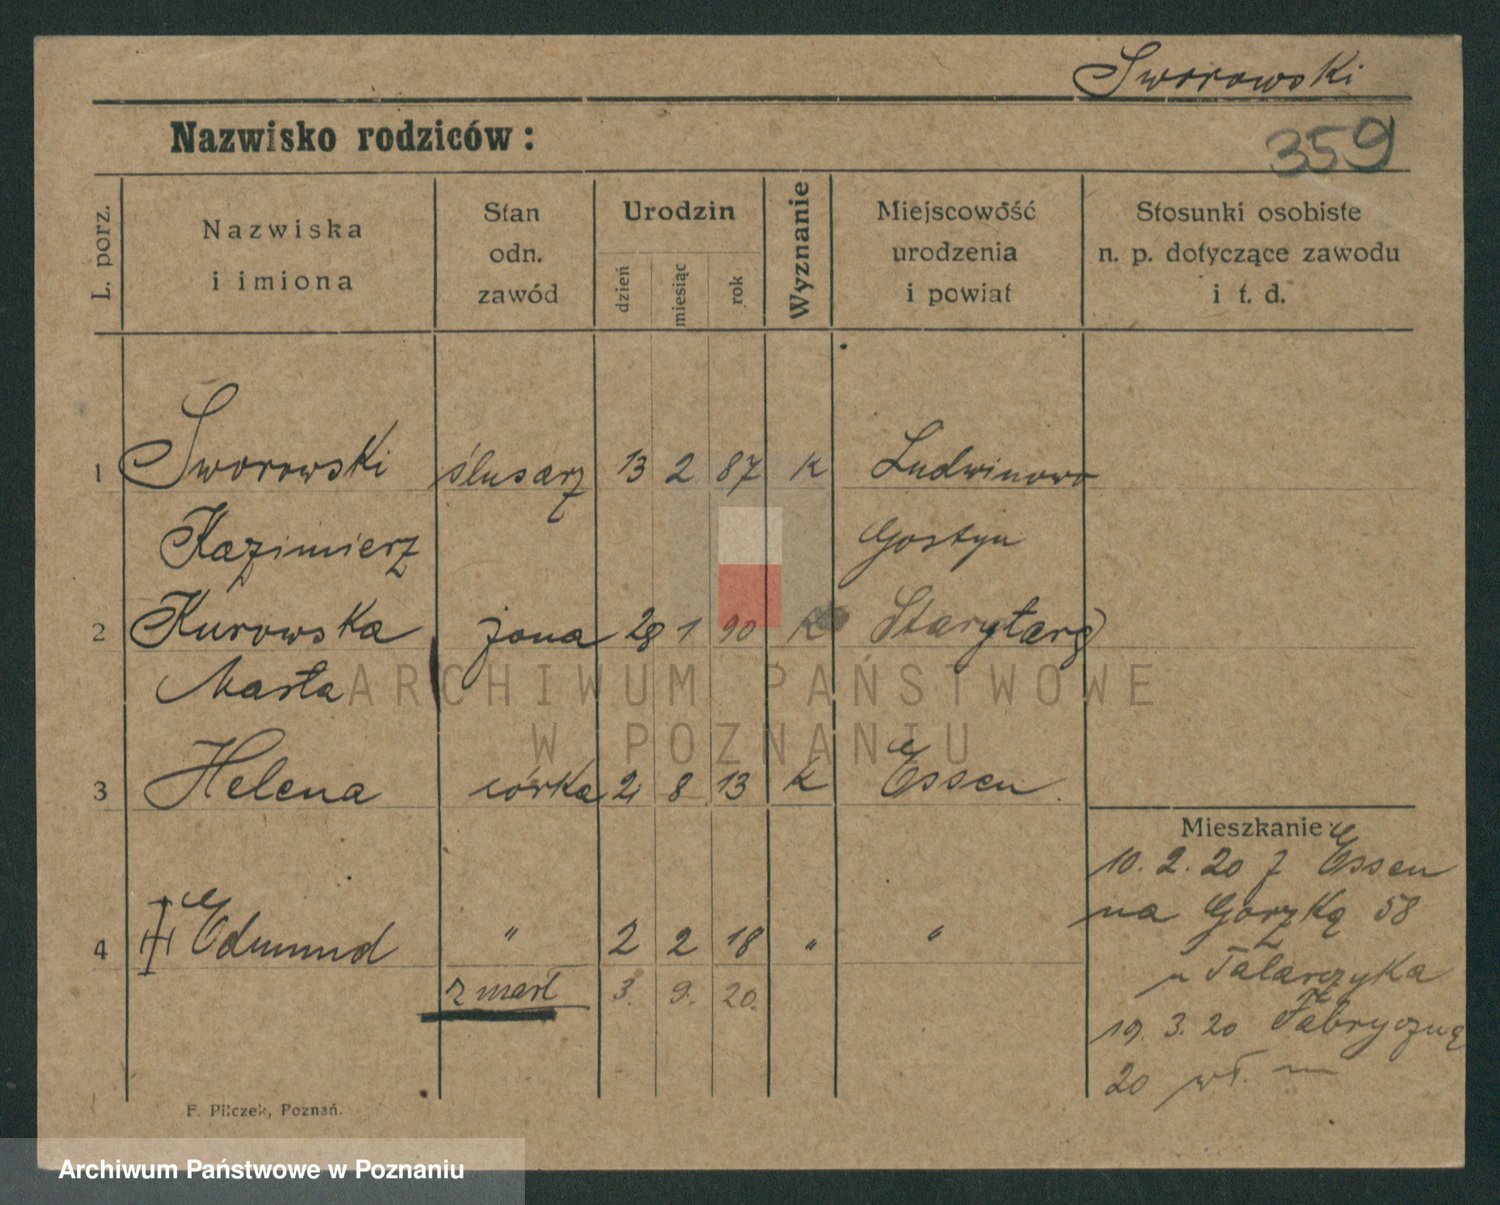 Sworowski
Nazwisko rodziców:
359
L. porz.
Nazwiska
i imiona
Stan
odn.
zawód
Urodzin
dzień
miesiąc
rok
Wyznanie
Miejscowość
urodzenia
i powiat
Stosunki osobiste
n. p. dotyczące zawodu
i t. d.
1 Sworowski ślusarz 13 2 87 K Ludwinowo
Kazimierz Gostyn
2 Kurowska żona 28 1 90 K Starytarg
Marta
3 Helena córka 2 8 13 K Essen
4 Edmund " 2 2 18 " "
zmarł 3. 9. 20.
Mieszkanie
10. 2. 20 z Essen
na Górzką 58
u Talarczyka
19. 3. 20 Fabryczną
20 wł. m
F. Pilczek, Poznań.
ARCHIWUM PAŃSTWOWE
W POZNANIU
Archiwum Państwowe w Poznaniu